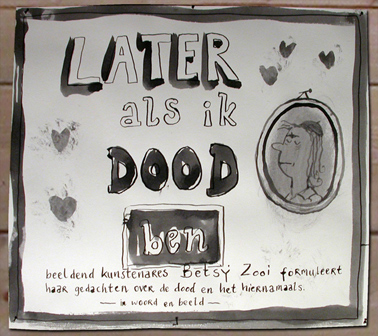 LATER
als ik
DOOD
ben
beeldend kunstenares Betsy Zooi formuleert
haar gedachten over de dood en het hiernamaals.
— in woord en beeld —